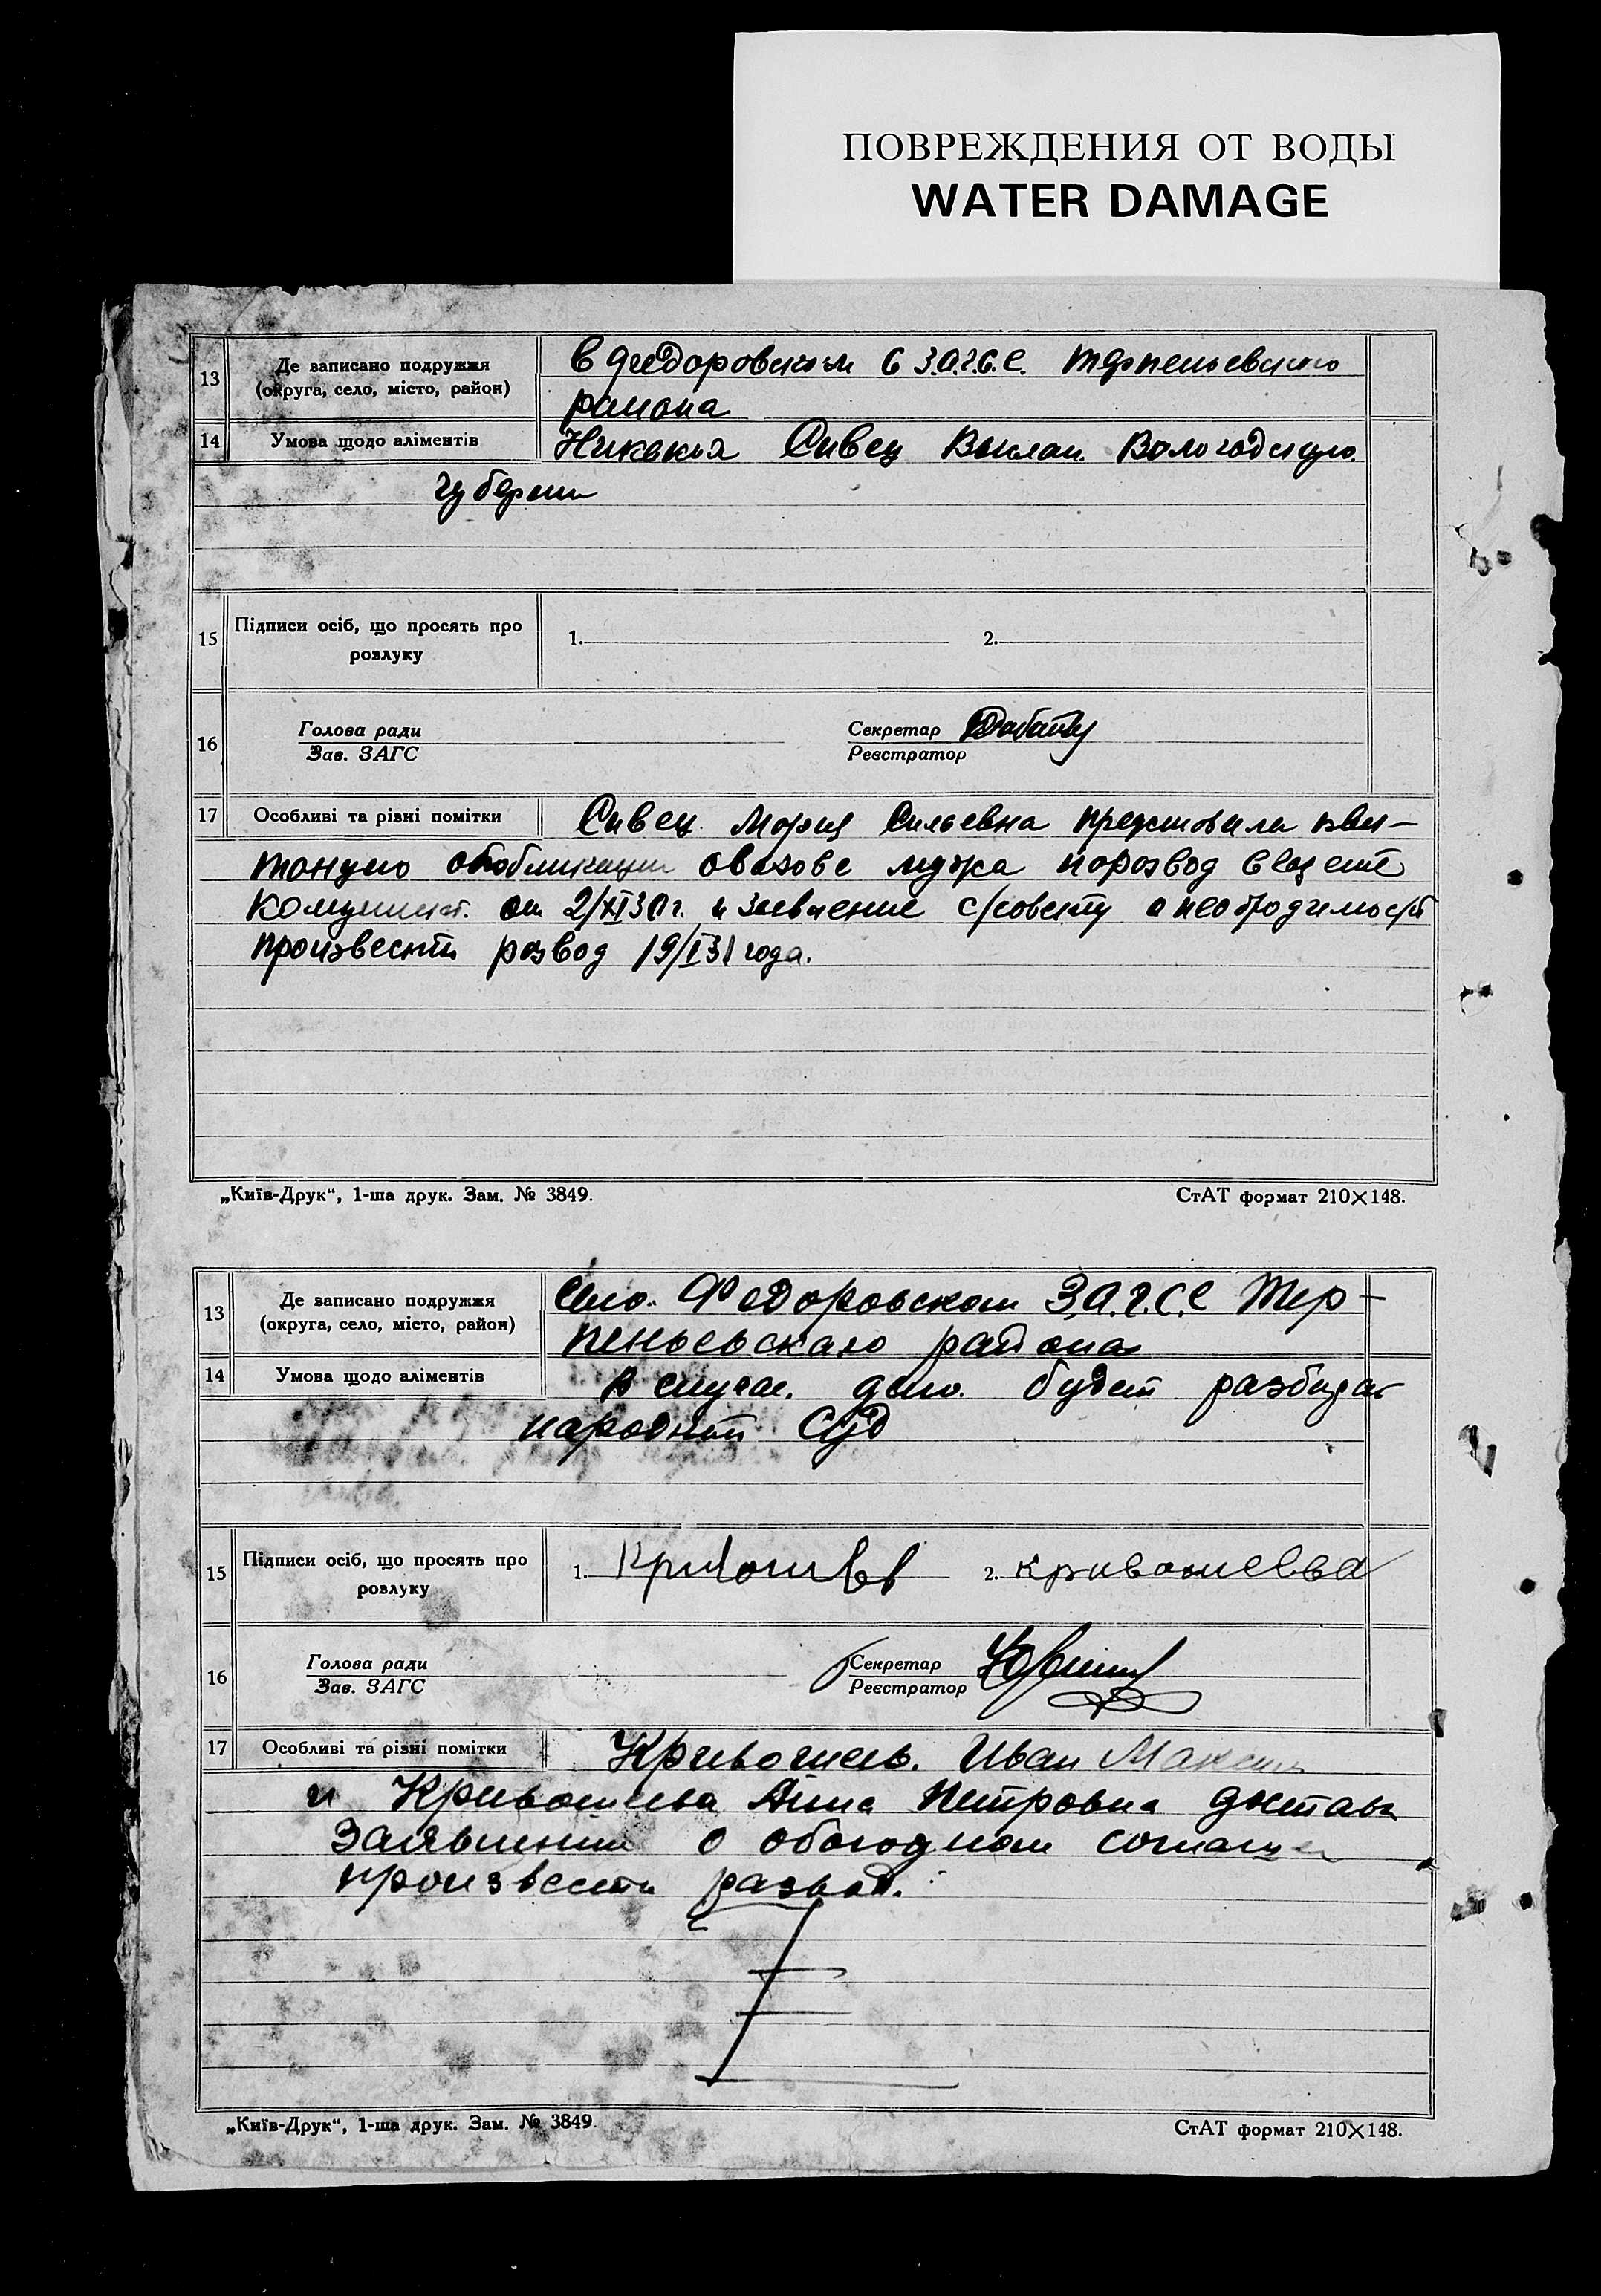 ПОВРЕЖДЕНИЯ ОТ ВОДЫ
WATER DAMAGE
13 Де записано подружжя
(округа, село, місто, район)
в Федоровском З.А.Г.С.е.
района
14 Умова щодо аліментів Никакия Сивец Выслан Вологодскую
губернии
15 Підписи осіб, що просять про розлуку 1. 2.
16 Голова ради
Зав. ЗАГС
Секретар
Реєстратор
17 Особливі та різні помітки Сивец Мория представила кви-
танцию мужа розвод в газете
Комунист. от 2/XI 30 г. и заевление с/совету о необходимости
произвести розвод 19/I 31 года.
„Київ-Друк“, 1-ша друк. Зам. № 3849. СтАТ формат 210×148.
13 Де записано подружжя
(округа, село, місто, район)
Федоровском З.А.Г.С.е Тер-
пеньевскаго района
14 Умова щодо аліментів В случае дело будет разбират
народний Суд
15 Підписи осіб, що просять про розлуку 1. 2. Кривошеева
16 Голова ради
Зав. ЗАГС
Секретар
Реєстратор
17 Особливі та різні помітки Кривошеев. Иван Максим
и Кривошеева Анна Петровна
Заявлении о обоюдном
произвести развод.
„Київ-Друк“, 1-ша друк. Зам. № 3849. СтАТ формат 210×148.